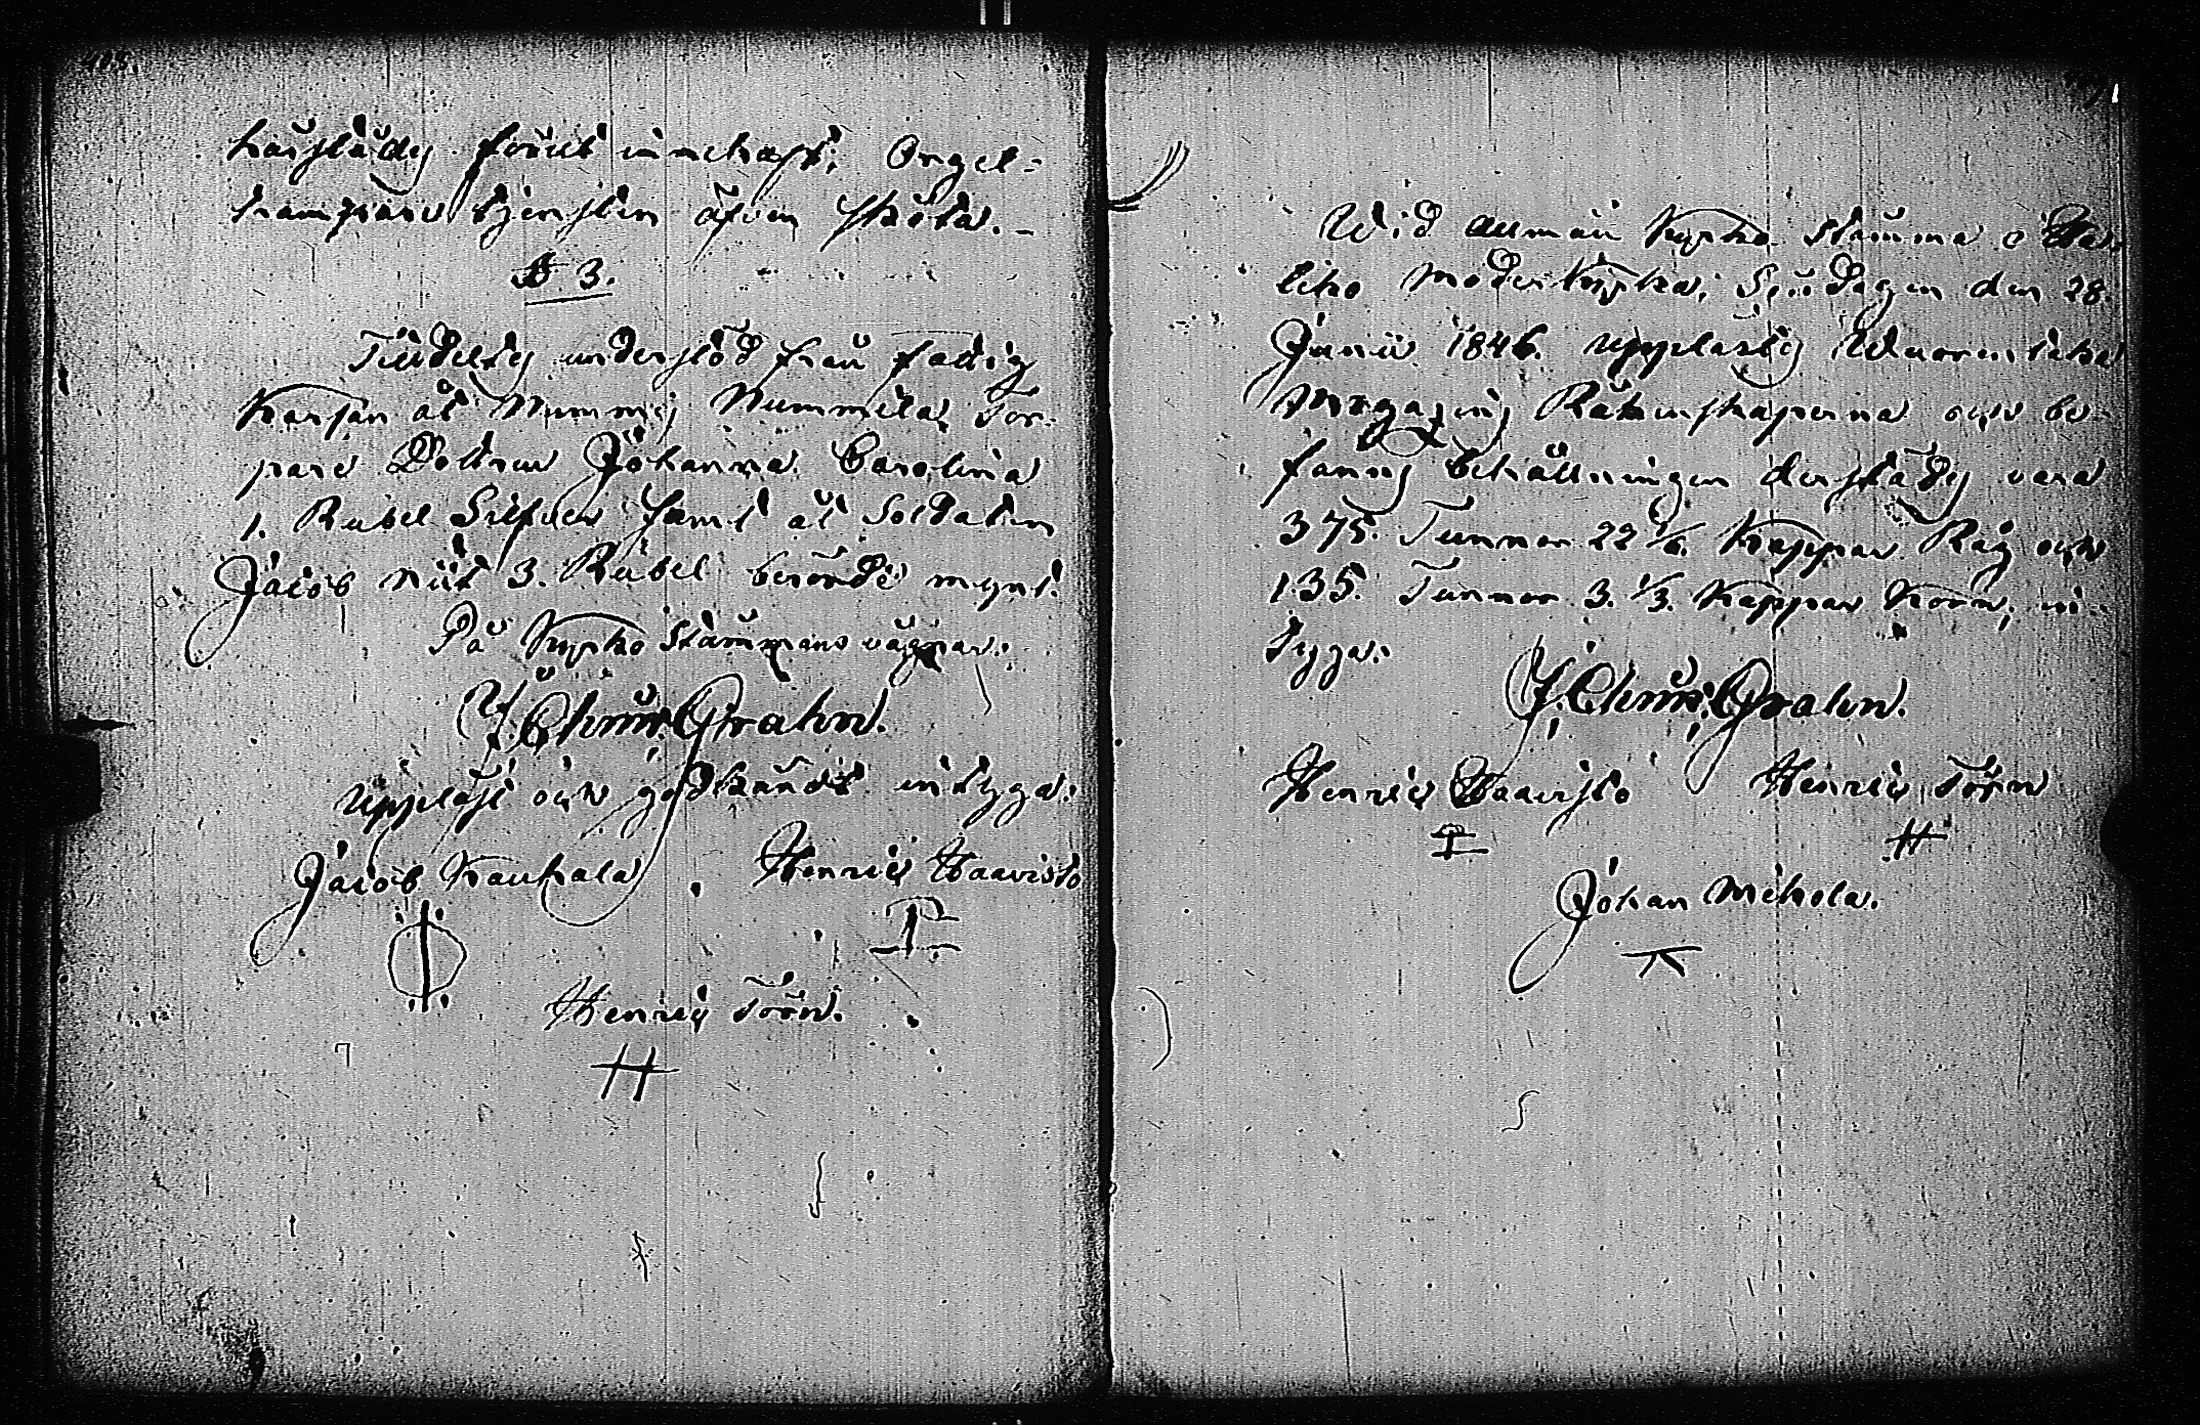 härstädes förut innehaft, Orgel-
tramparetjensten äfven sköta. -
§ 3.
Tilldeltes understöd från fattig
Kassan åt Nummis Nummila Tor-
pare Dottren Johanna Carolina
1. Rubel Silfver samt åt Soldaten
Jacob Niit 3. Rubel berörde mynt.
På Kyrko Stämmans vägnar.
J. Chrn: Grahn.
Uppläst och godkändt intyga:
Jacob Kauhala Henric Haavisto
Henric Törn.
Wid allmän Kyrko Stämma i Ha-
liko Moderkyrka, Söndagen den 28.
Junii 1846. upplästes Wuorentaka
Magazins Räkenskaperna och be-
fanns behållningen derstädes vara
375. Tunnor 22 1/6. Kappar Råg och
135. Tunnor 3. 1/3. Kappar Korn, in-
tyga.
J. Chrn: Grahn.
Henric Haavisto Henric Törn
Johan Mehola.